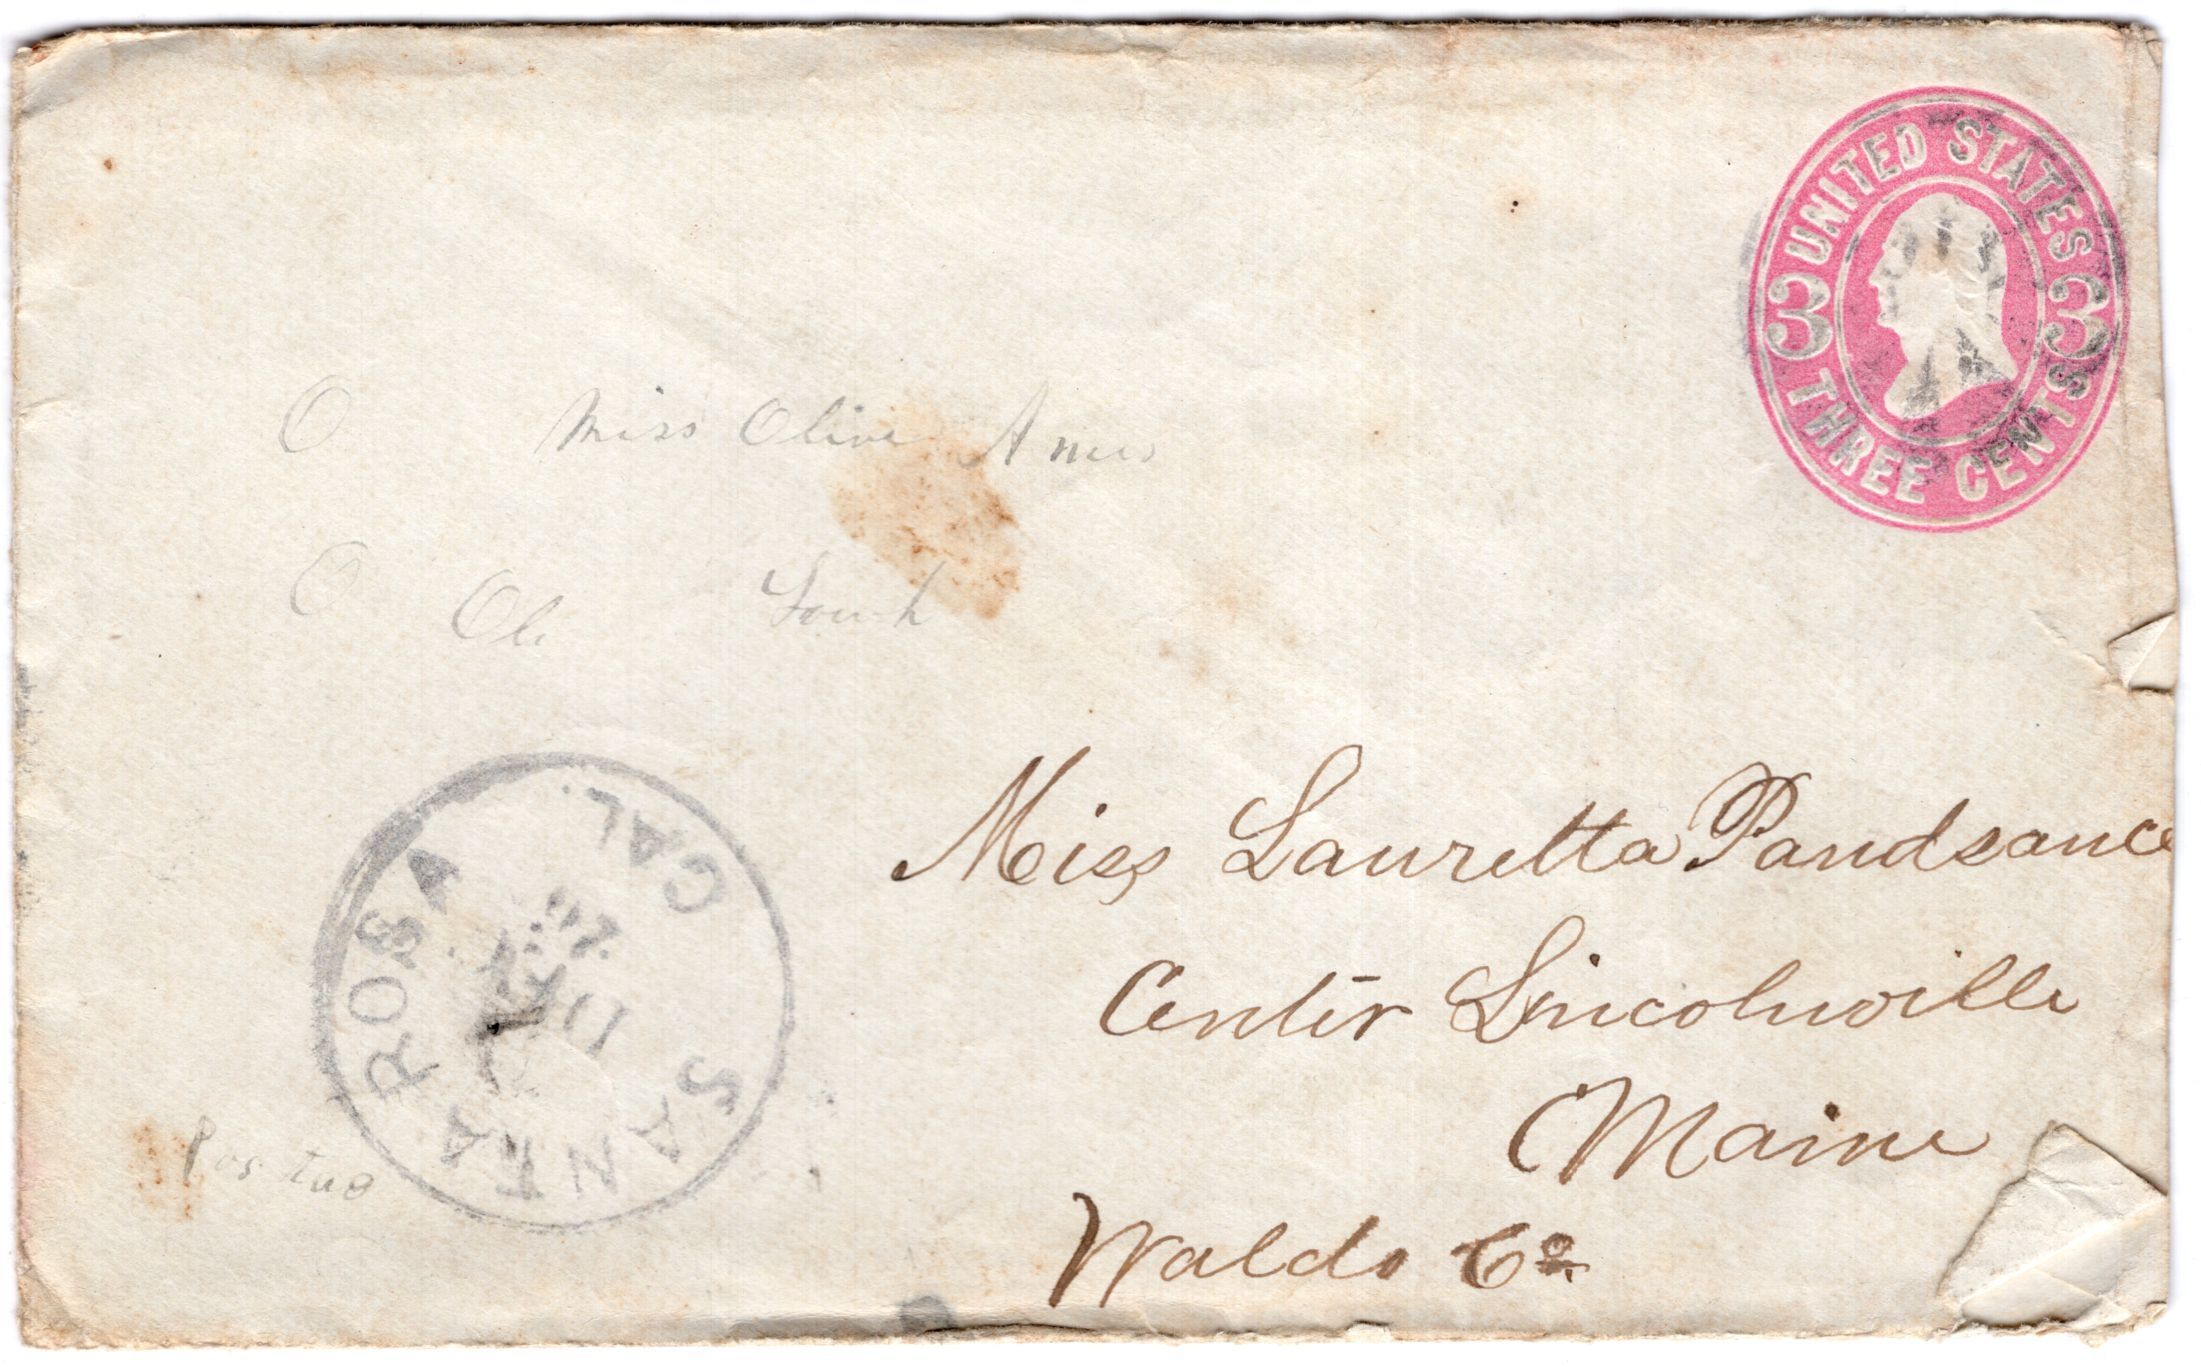 UNITED STATES
3 3
THREE CENTS
O Miss Olive Ames
O Oli
SANTA ROSA CAL.
DEC
Miss Lauretta Pandsance
Center Lincolnville
Maine
Waldo Co.